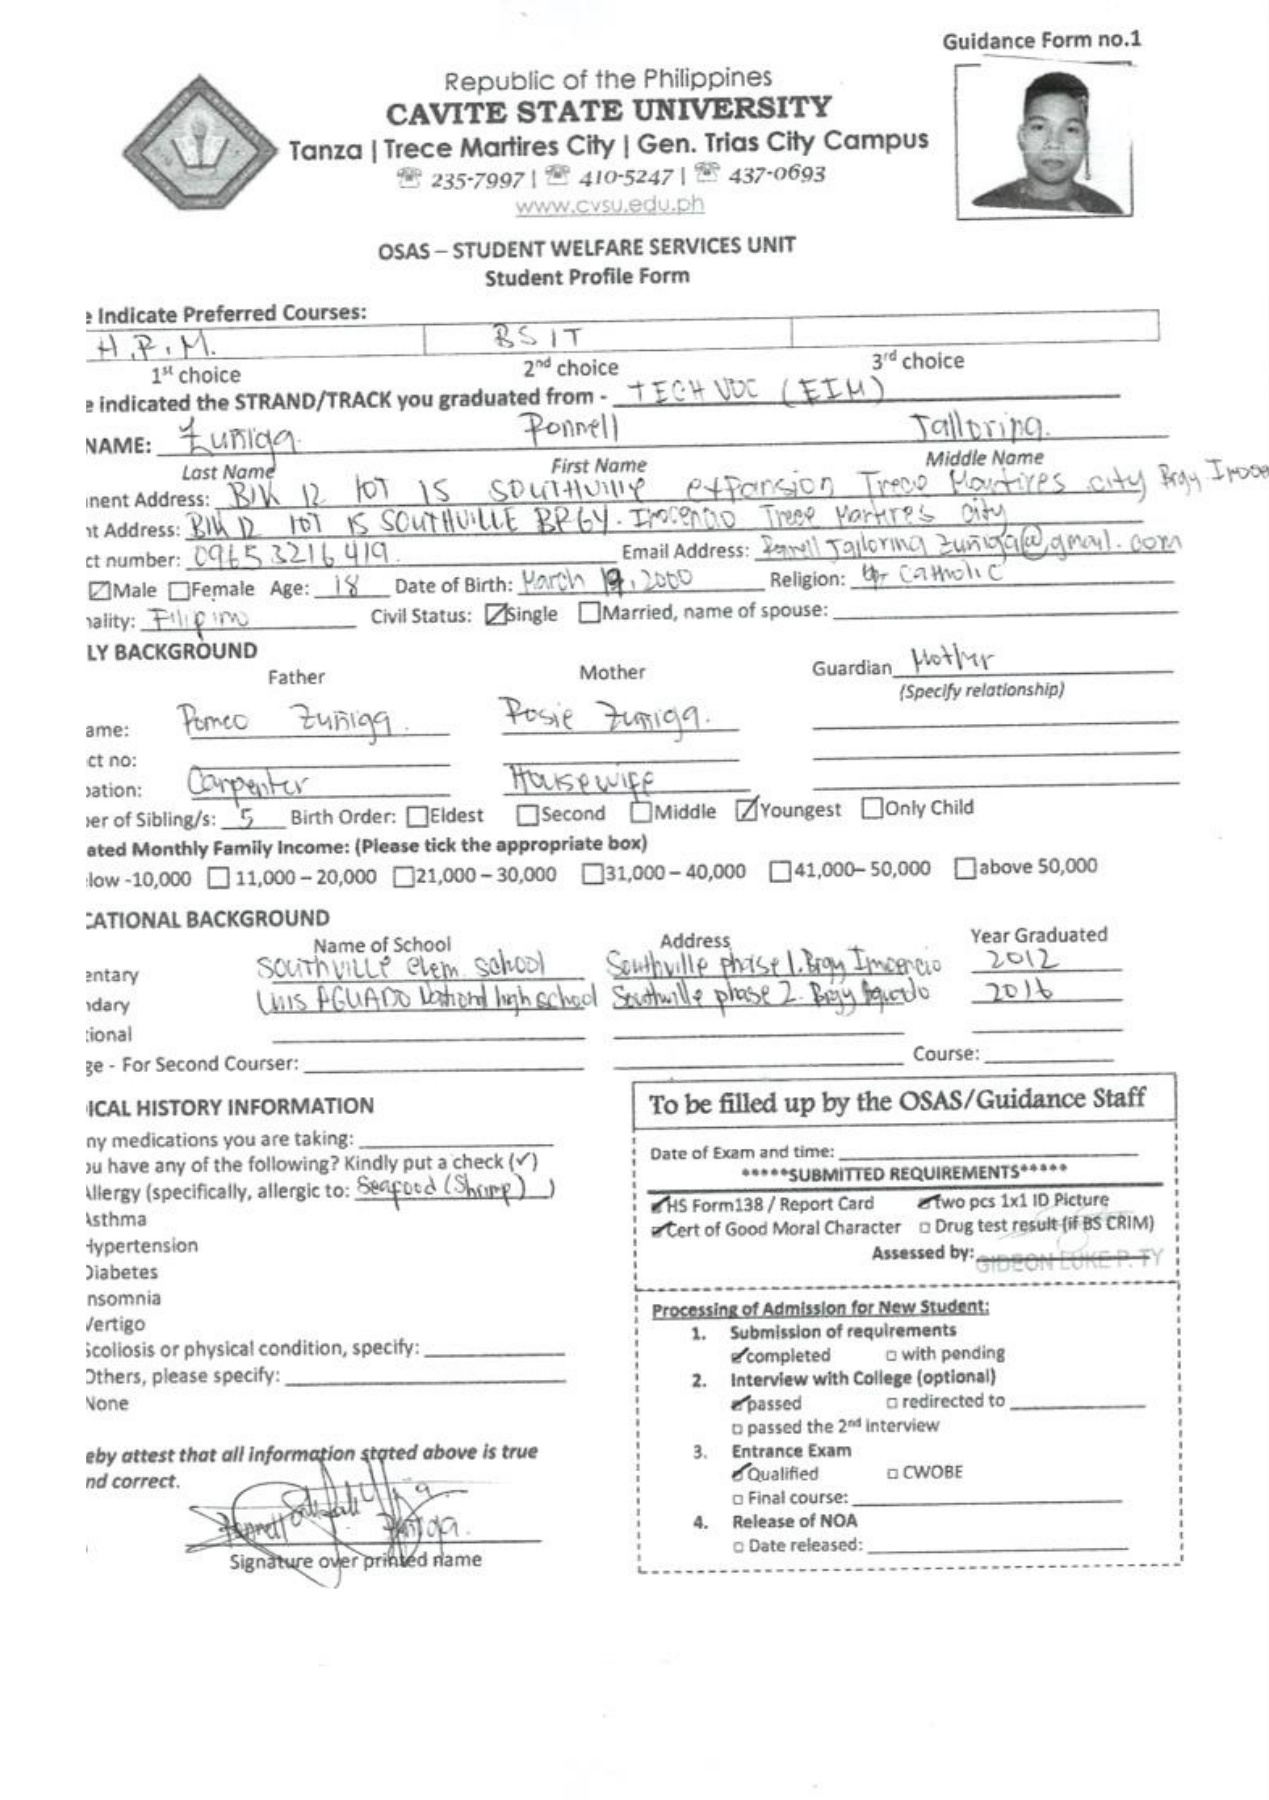 Guidance Form no.1
Republic of the Philippines
CAVITE STATE UNIVERSITY
Tanza | Trece Martires City | Gen. Trias City Campus
☏ 235-7997 | ☏ 410-5247 | ☏ 437-0693
www.cvsu.edu.ph
OSAS – STUDENT WELFARE SERVICES UNIT
Student Profile Form
e Indicate Preferred Courses:
BSIT
1st choice 2nd choice 3rd choice
e indicated the STRAND/TRACK you graduated from - TECH VOC (EIM)
NAME: Zuñiga Ronnell
Last Name First Name Middle Name
nent Address: Blk 12 lot 15 SOUTHVILLE expansion Trece Martires city Brgy
nt Address: Blk 12 lot 15 SOUTHVILLE BRGY. Trece Martires City
ct number: 09653216419 Email Address:
☑Male ☐Female Age: 18 Date of Birth: March 19, 2000 Religion: Catholic
nality: Filipino Civil Status: ☑Single ☐Married, name of spouse:
LY BACKGROUND
Father Mother Guardian Mother
(Specify relationship)
ame: Romeo Zuñiga. Rosie Zuñiga.
ct no:
pation: Carpenter Housewife
er of Sibling/s: 5 Birth Order: ☐Eldest ☐Second ☐Middle ☑Youngest ☐Only Child
ated Monthly Family Income: (Please tick the appropriate box)
low -10,000 ☐ 11,000 – 20,000 ☐21,000 – 30,000 ☐31,000 – 40,000 ☐41,000– 50,000 ☐above 50,000
CATIONAL BACKGROUND
Name of School Address Year Graduated
entary SOUTHVILLE elem. school Southville phase 1. Brgy 2012
ndary LUIS AGUADO National high school Southville phase 2. Brgy Aguado 2016
tional
ge - For Second Courser: Course:
ICAL HISTORY INFORMATION
ny medications you are taking:
ou have any of the following? Kindly put a check (✓)
Allergy (specifically, allergic to: Seafood (Shrimp) )
Asthma
Hypertension
Diabetes
nsomnia
Vertigo
Scoliosis or physical condition, specify:
Others, please specify:
None
eby attest that all information stated above is true
nd correct.
Signature over printed name
To be filled up by the OSAS/Guidance Staff
Date of Exam and time:
*****SUBMITTED REQUIREMENTS*****
☑HS Form138 / Report Card ☑Two pcs 1x1 ID Picture
☑Cert of Good Moral Character ☐ Drug test result (if BS CRIM)
Assessed by: GIDEON LUKE P. TY
Processing of Admission for New Student:
1. Submission of requirements
☑completed ☐ with pending
2. Interview with College (optional)
☑passed ☐ redirected to
☐ passed the 2nd interview
3. Entrance Exam
☑Qualified ☐ CWOBE
☐ Final course:
4. Release of NOA
☐ Date released: